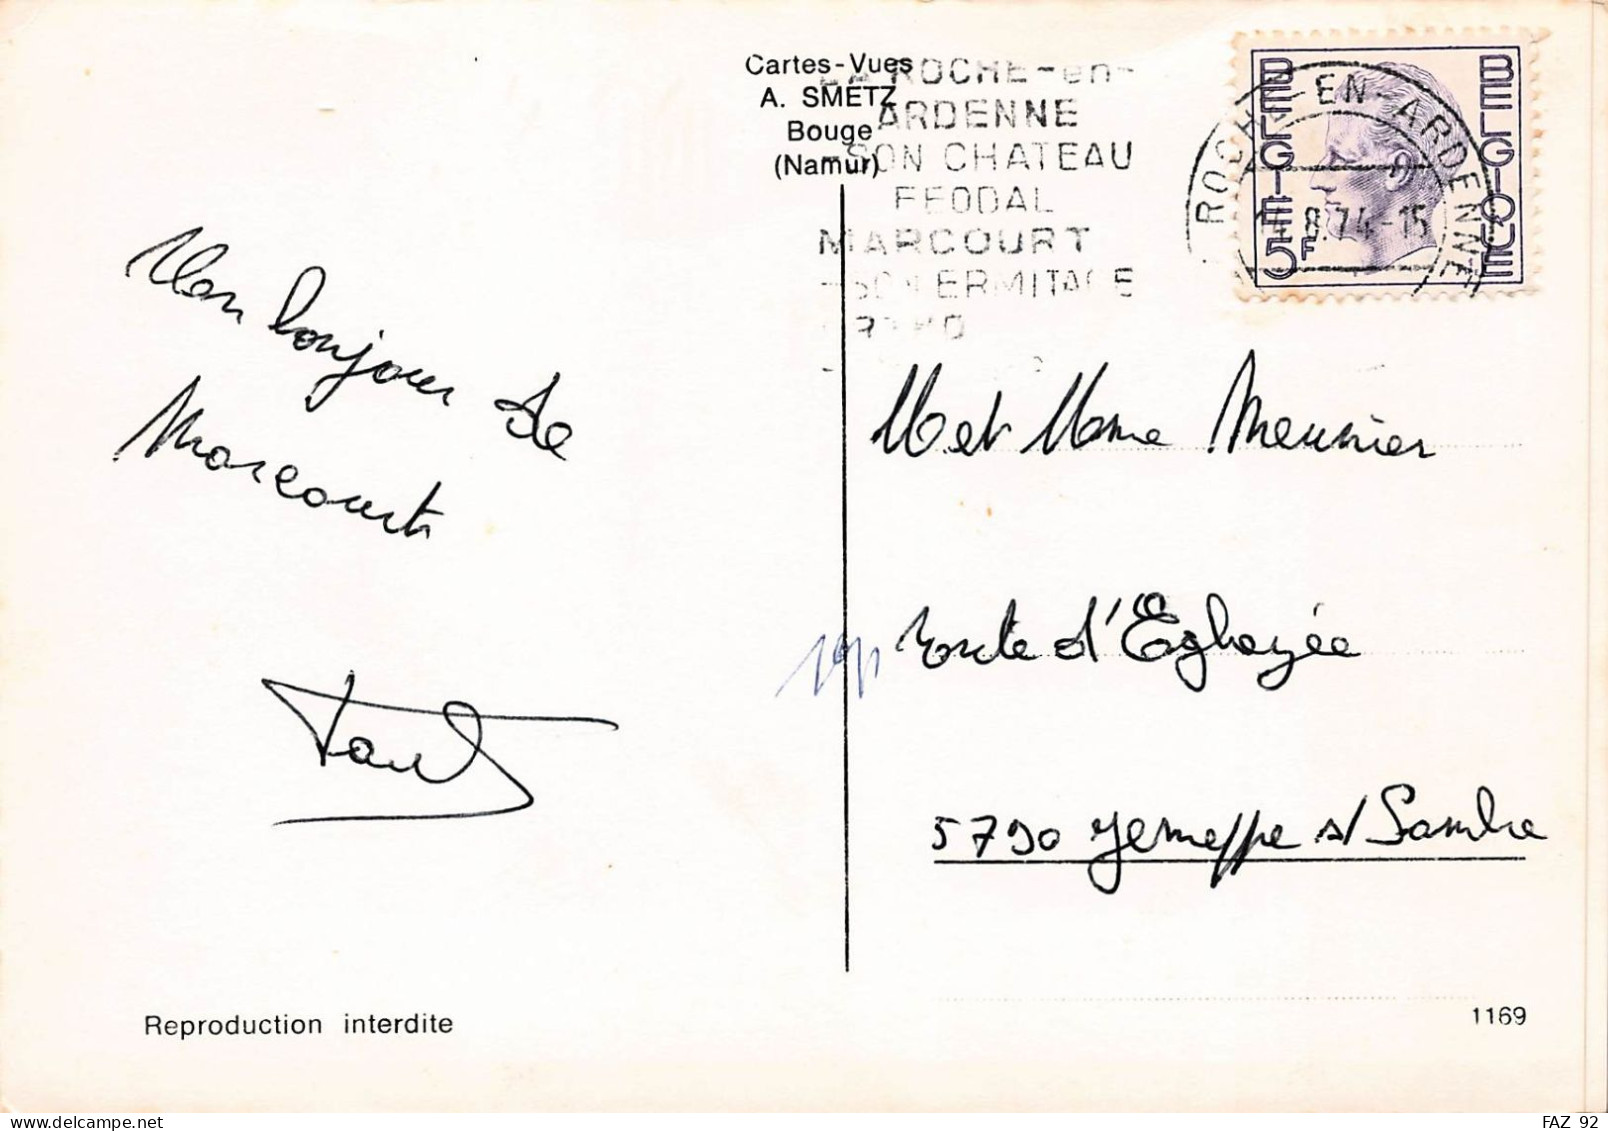 Cartes-Vues
A. SMETZ
Bouge
(Namur)
LA ROCHE-en-
ARDENNE
SON CHATEAU
FEODAL
MARCOURT
-SON ERMITAGE
BELGIE
5F
BELGIQUE
ROCHE-EN-ARDENNE
14.8.74-15
Un bonjour de
Marcourt
M et Mme Meunier
route d'Eghezée
5790 Jemeppe s/Sambre
Reproduction interdite
1169
FAZ 92